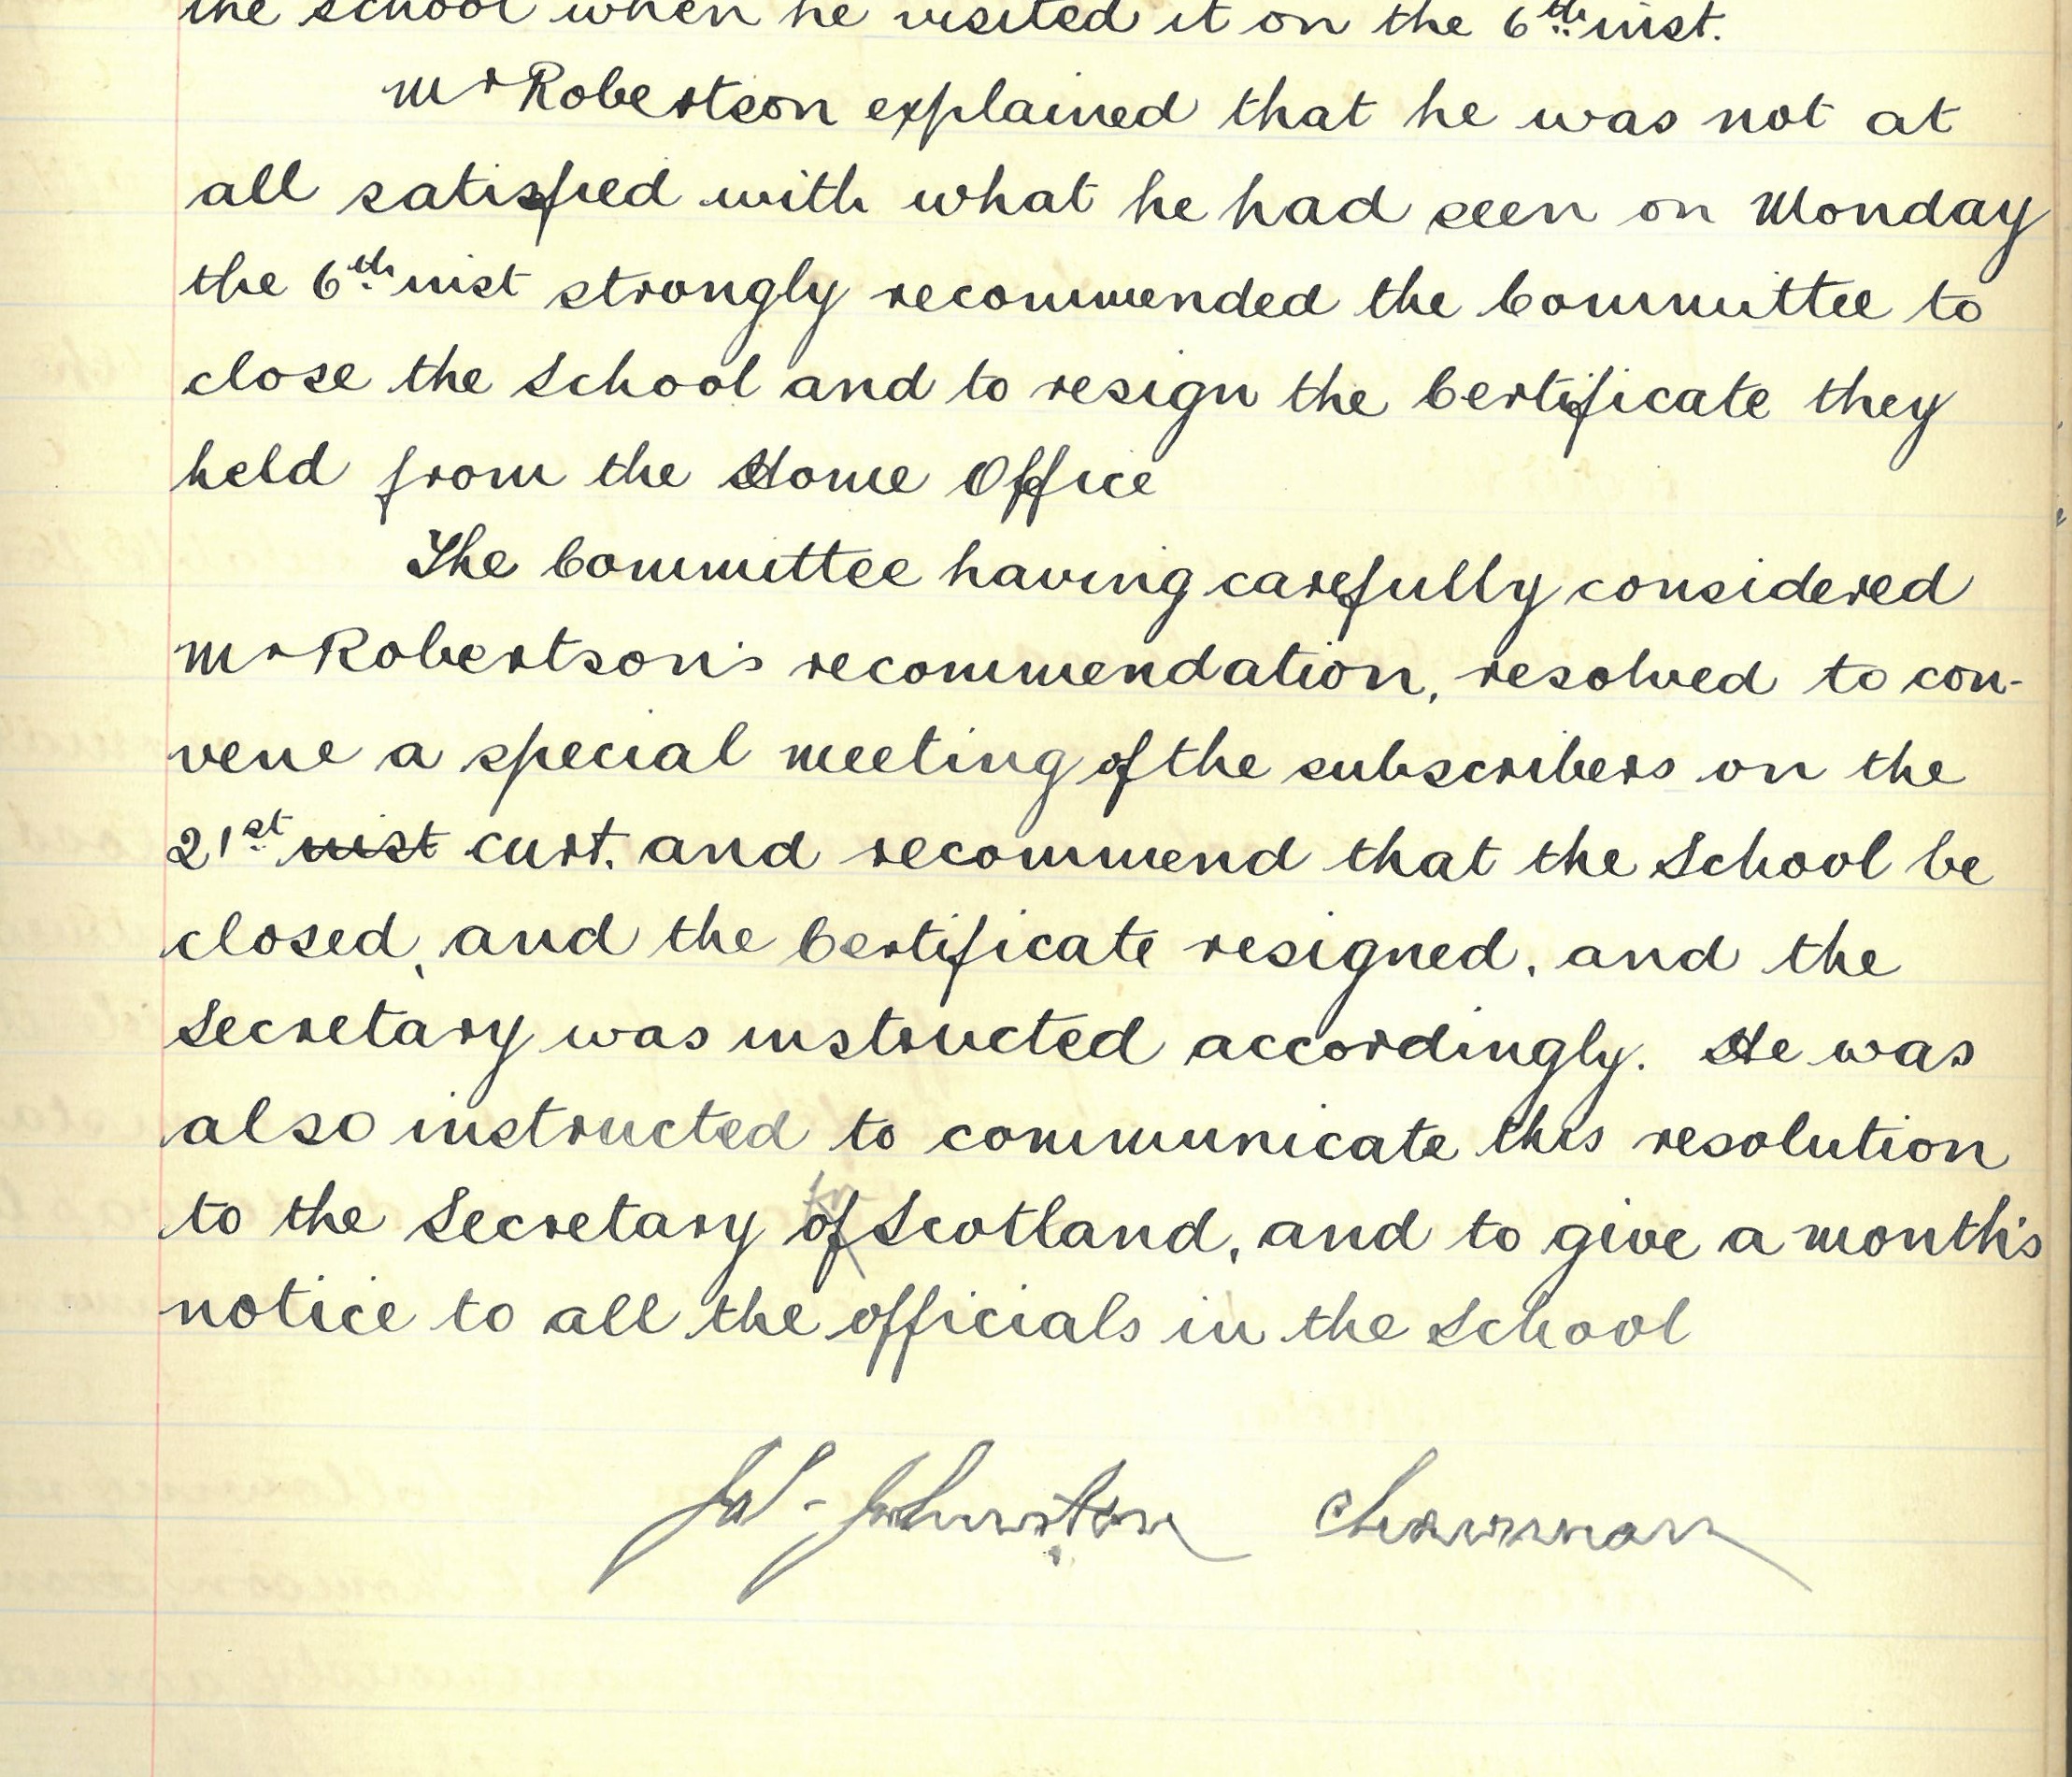 the school when he visited it on the 6th inst.
Mr Robertson explained that he was not at
all satisfied with what he had seen on Monday
the 6th inst strongly recommended the Committee to
close the School and to resign the Certificate they
held from the Home Office
The Committee having carefully considered
Mr Robertson's recommendation, resolved to con-
vene a special meeting of the subscribers on the
21st inst curt. and recommend that the School be
closed, and the Certificate resigned, and the
Secretary was instructed accordingly. He was
also instructed to communicate this resolution
for
to the Secretary of Scotland, and to give a month's
notice to all the officials in the School
Johnston Chairman